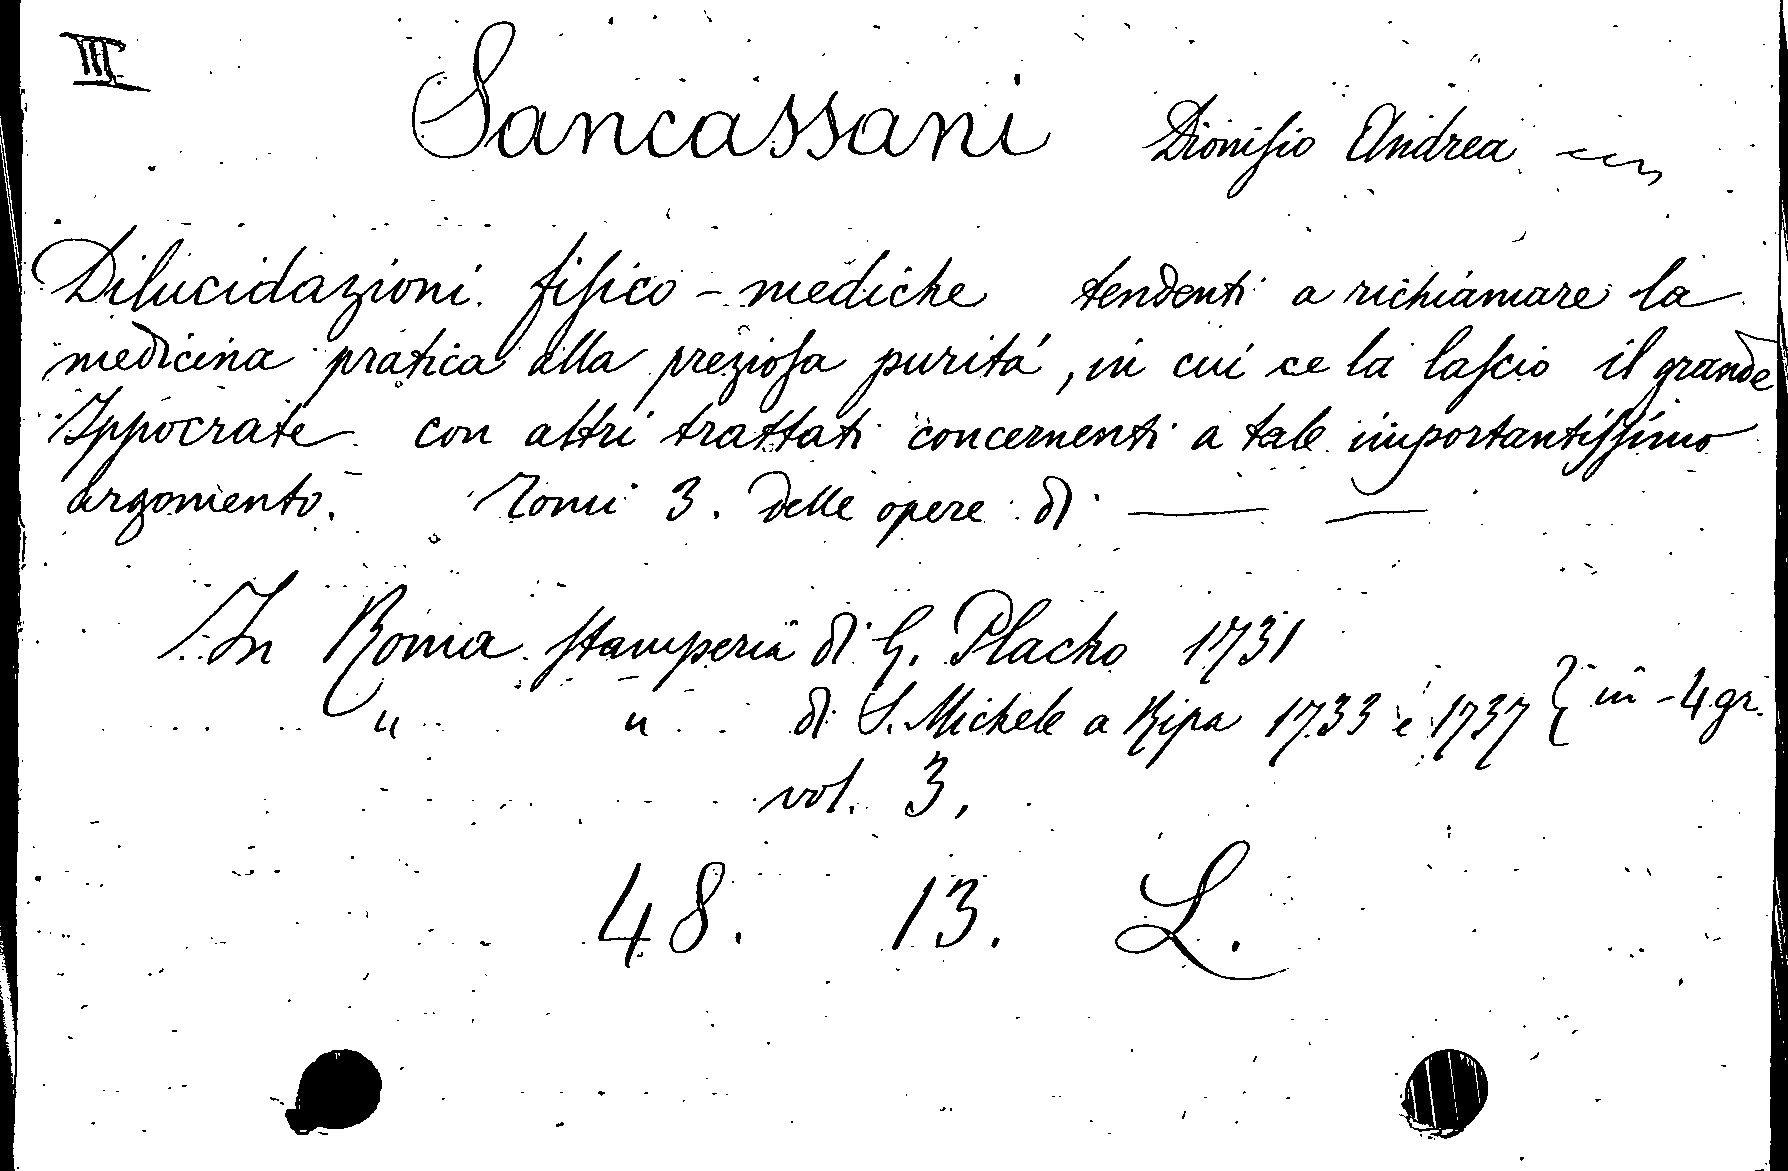 III
Sancassani Dionisio Andrea
Dilucidazioni fisico-mediche tendenti a richiamare la
medicina pratica alla preziosa puritá, in cui ce la lascio il grande
Ippocrate con altri trattati concernenti a tale importantissimo
argomento. Tomi 3. delle opere di — —
In Roma stamperia di G. Placho 1731
" " di S. Michele a Ripa 1733 e 1737 } in-4 gr.
vol. 3.
48. 13. L.